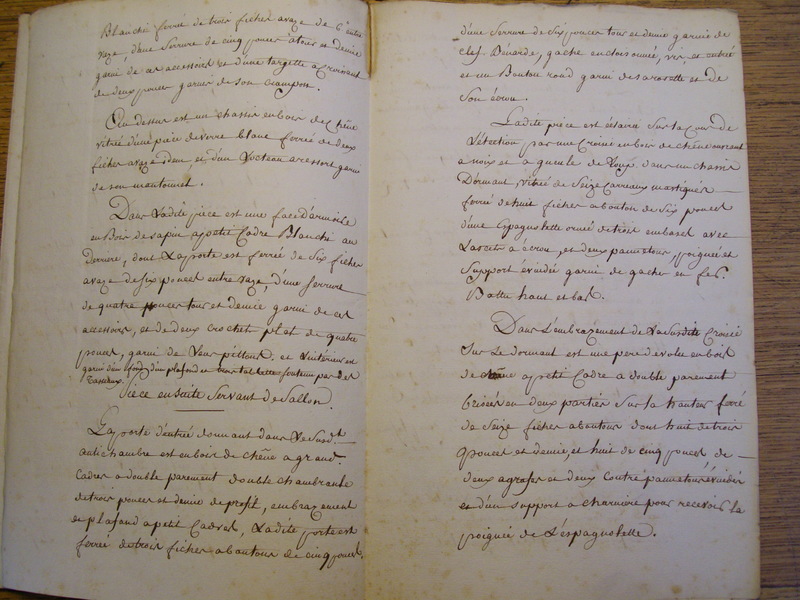 Blanchi ferrée de trois fiches avaze de 6° entre
vaze, d'une Serrure de cinq pouces a tour et demie
garni de ces accessoirs et d'une targette a croissant
de deux pouces garnie de son crampon.
Au dessus est un chassis en bois de Chêne
vitrée d'une pièce de verre blanc ferrée de deux
fiches avaze idem, et d'un Locteau a ressort garni
de son mantonnet.
Dans Ladite pièce est une face d'armoire
en Bois de sapin a petit Cadre Blanchi au
derriere, dont La porte est ferrée de Six fiches
avaze de six pouces entre vaze, d'une serrure
de quatre pouces tour et demie garni de ces
accessoirs, et de deux crochets plat de quatre
pouces, garni de Leurs pittons. et L'intérieur est
garni d'un fond d'un plafond et tablettes soutenu par des
Tasseaux.
Pièce en Suite Servant de Sallon.
La porte d'entrée donnant dans Le Susd.t
antichambre est en bois de chêne a grand
Cadres a double parement double chambranle
de trois pouces et demie de profil, embrazement
et plafond a petit Cadres, Ladite porte est
ferrée de trois fiches a boutons de cinq pouces,
d'une Serrure de Six pouces tour et demie garnie de
clef. Benarde, gache encloisonnée, vis, et entrée
et un Bouton rond garni de sa rosette et de
Son écrou.
Ladite pièce est éclairée Sur La Cour de
par une Croisée en bois de chêne ouvrant
a noix et a gueule de Loup. dans un chassis
Dormant, vitrée de Seize Carreaux mastiqués
ferrée de huit fiches a bouton de Six pouces
d'une Espagnolette ornée de trois embases avec
Lacets a écrou, et deux pannetons, poignée et
Support évuidée garnie de gaches en fer.
Battu haut et bas.
Dans L'embrazement de La Susdite Croisée
Sur Le dormant est une paire de volets en bois
de chêne a petit Cadre a double parement
brisées en deux parties Sur La hauteur ferré
de Seize fiches a boutons dont huit de trois
pouces et demie, et huit de cinq pouces de
deux agrafes et deux Contre pannetons évuidés
et d'un support a charniere pour recevoir La
poignée de L'espagnolette.